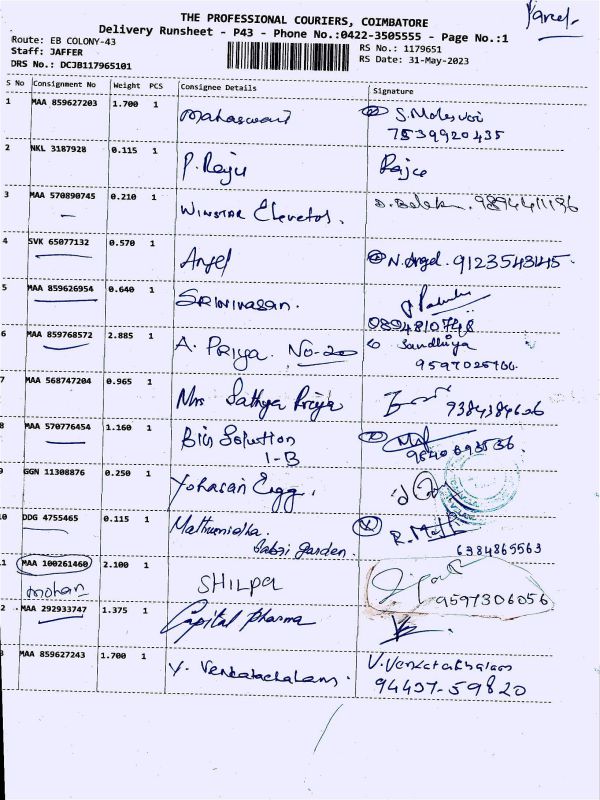 Parcel
THE PROFESSIONAL COURIERS, COIMBATORE
Delivery Runsheet - P43 - Phone No.:0422-3505555 - Page No.:1
Route: EB COLONY-43
Staff: JAFFER
DRS No.: DCJB117965101
RS No.: 1179651
RS Date: 31-May-2023
S No Consignment No Weight PCS Consignee Details Signature
1 MAA 859627203 1.700 1 Mahaswari S.Maheswari
7539920435
2 NKL 3187928 0.115 1 P. Raju Raju
3 MAA 570890745 0.210 1 WINSTAR Elevetos. 9894411196
4 SVK 65077132 0.570 1 Angel N. Angel. 9123543145.
5 MAA 859626954 0.640 1 SRINIVASAN.
9894810748
6 MAA 859768572 2.885 1 A. PRIYA. NO-20 Sandhiya
7 MAA 568747204 0.965 1 Mrs Sathya Priya 9384384606
8 MAA 570776454 1.160 1 Bio Solution
1-B
9 GGN 11308876 0.250 1 Yohasan Engg.
10 DDG 4755465 0.115 1 Mathumidha.
Sabari garden. 6384865563
11 MAA 100261460 2.100 1 SHILPA
mohan 9597306056
12 MAA 292933747 1.375 1 Capital Pharma
MAA 859627243 1.700 1 V. Venkatachalam. V.Venkatachalam
94437-59820